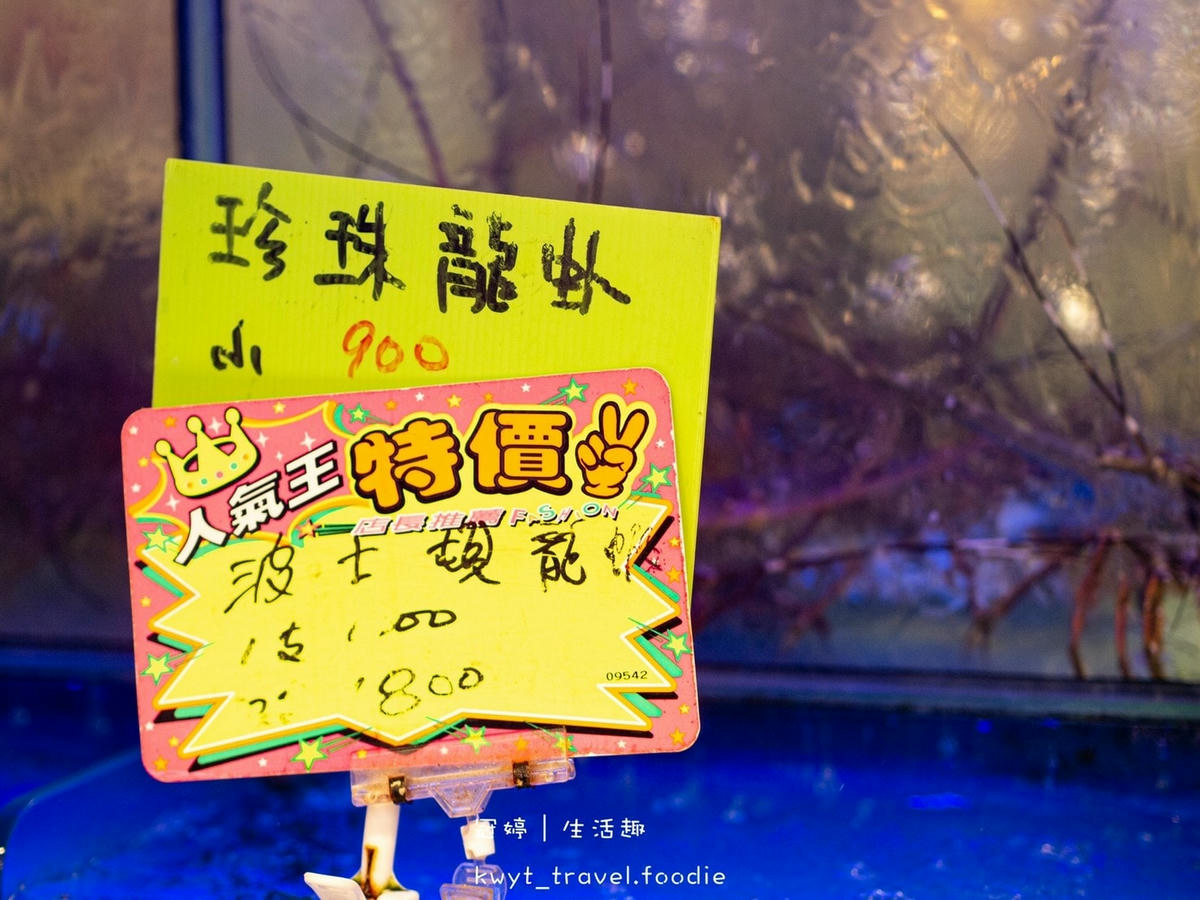 珍珠龍虾
小 900
人氣王 特價
店長推薦 FASHION
波士頓龍蝦
1支
800
09542
冠婷 | 生活趣
kwyt_travel.foodie